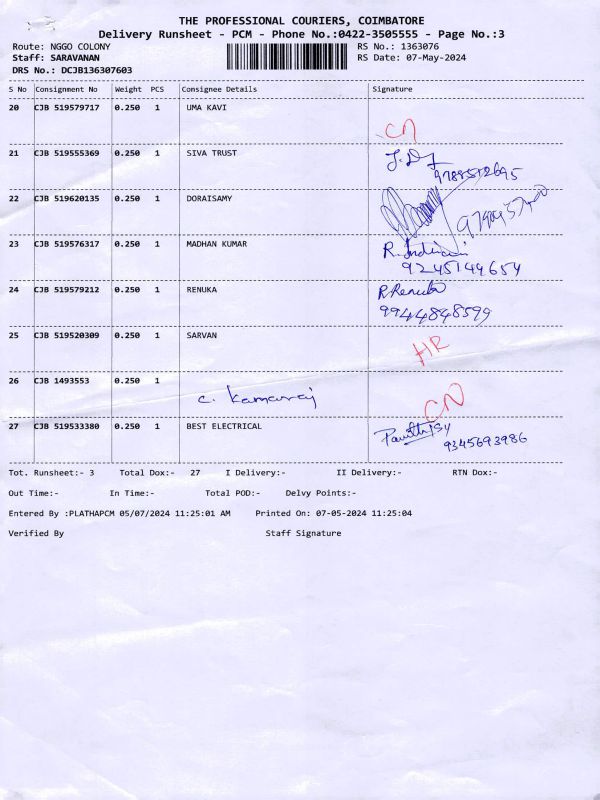 THE PROFESSIONAL COURIERS, COIMBATORE
Delivery Runsheet - PCM - Phone No.:0422-3505555 - Page No.:3
Route: NGGO COLONY RS No.: 1363076
Staff: SARAVANAN RS Date: 07-May-2024
DRS No.: DCJB136307603
S No Consignment No Weight PCS Consignee Details Signature
20 CJB 519579717 0.250 1 UMA KAVI
CN
21 CJB 519555369 0.250 1 SIVA TRUST
9788572695
22 CJB 519620135 0.250 1 DORAISAMY
23 CJB 519576317 0.250 1 MADHAN KUMAR
9245149654
24 CJB 519579212 0.250 1 RENUKA R.Renuka
9944848599
25 CJB 519520309 0.250 1 SARVAN
HR
26 CJB 1493553 0.250 1
C. Kamaraj CN
27 CJB 519533380 0.250 1 BEST ELECTRICAL
9345693986
Tot. Runsheet:- 3 Total Dox:- 27 I Delivery:- II Delivery:- RTN Dox:-
Out Time:- In Time:- Total POD:- Delvy Points:-
Entered By :PLATHAPCM 05/07/2024 11:25:01 AM Printed On: 07-05-2024 11:25:04
Verified By Staff Signature